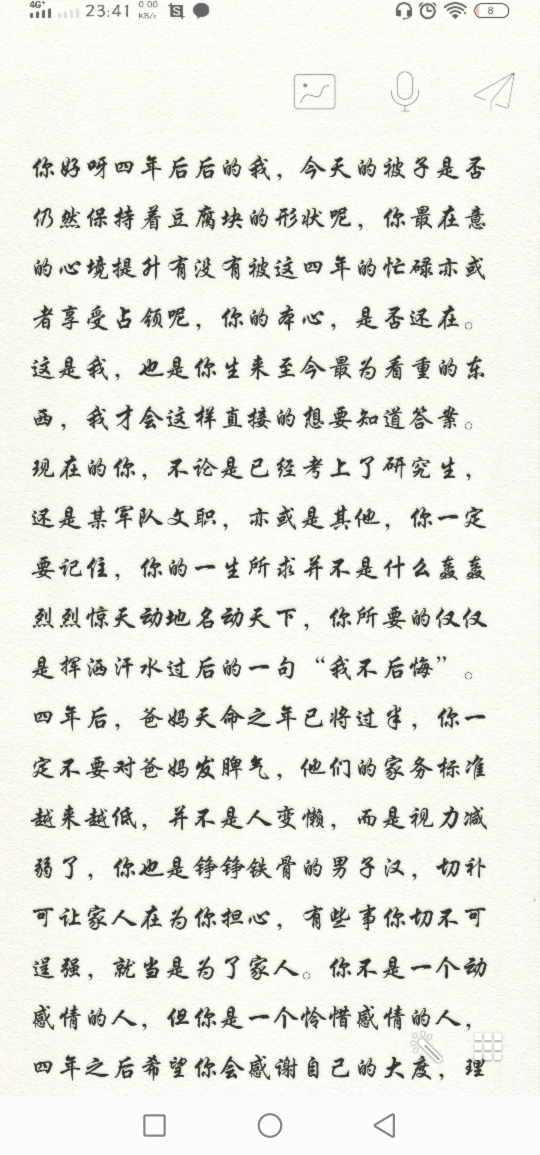 4G+ 23:41 0.00 KB/s 8
你好呀四年后后的我，今天的被子是否
仍然保持着豆腐块的形状呢，你最在意
的心境提升有没有被这四年的忙碌亦或
者享受占领呢，你的本心，是否还在。
这是我，也是你生来至今最为看重的东
西，我才会这样直接的想要知道答案。
现在的你，不论是已经考上了研究生，
还是某军队文职，亦或是其他，你一定
要记住，你的一生所求并不是什么轰轰
烈烈惊天动地名动天下，你所要的仅仅
是挥洒汗水过后的一句“我不后悔”。
四年后，爸妈天命之年已将过半，你一
定不要对爸妈发脾气，他们的家务标准
越来越低，并不是人变懒，而是视力减
弱了，你也是铮铮铁骨的男子汉，切补
可让家人在为你担心，有些事你切不可
逞强，就当是为了家人。你不是一个动
感情的人，但你是一个怜惜感情的人，
四年之后希望你会感谢自己的大度，理